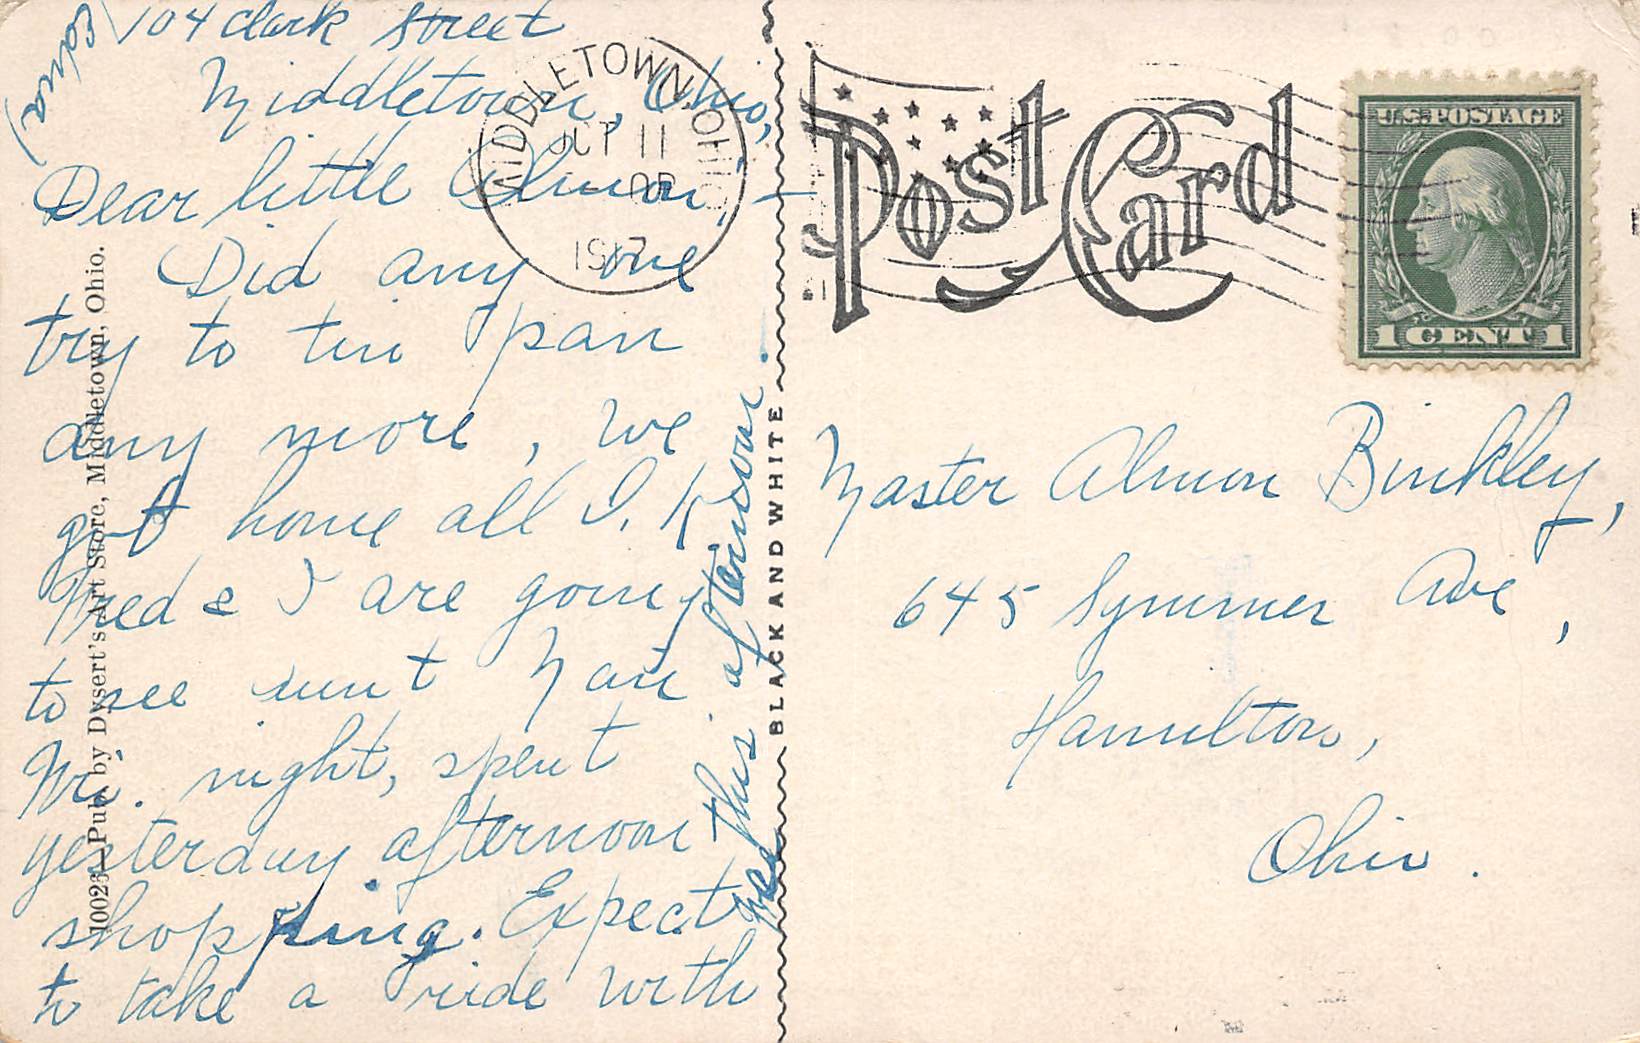 104 Clark Street
Middletown, Ohio,
Dear little Almon, -
Did any one
try to tin pan
any more, We
got home all O.K
Fred & I are going
to see aunt Nan
Fri. night, spent
yesterday afternoon
shopping. Expect
to take a ride with
this afternoon.
(Edna)
MIDDLETOWN, OHIO
OCT 11
1917
10026—Pub. by Dysert's Art Store, Middletown, Ohio.
BLACK AND WHITE
Post Card
U.S. POSTAGE
1 CENT 1
Master Almon Binkley,
645 Symmes Ave,
Hamilton,
Ohio.